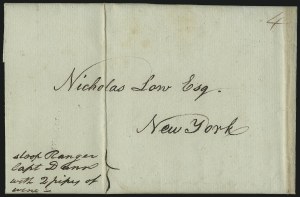 4
Nicholas Low Esq.
New York
sloop Ranger
Capt Dunn
with 2 pipes of
wine